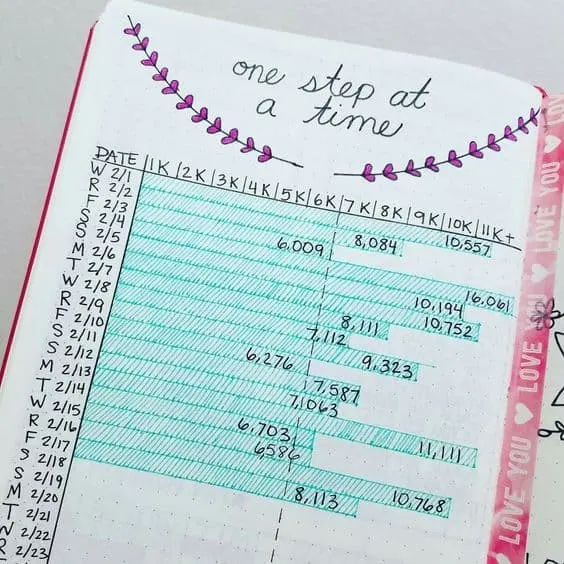 one step at
a time
DATE | 1K | 2K | 3K | 4K | 5K | 6K | 7K | 8K | 9K | 10K | 11K+
W 2/1
R 2/2
F 2/3
S 2/4
S 2/5
M 2/6
T 2/7
W 2/8
R 2/9
F 2/10
S 2/11
S 2/12
M 2/13
T 2/14
W 2/15
R 2/16
F 2/17
S 2/18
S 2/19
M 2/20
T 2/21
W 2/22
R 2/23
10,557
8,084
6,009
16,061
10,194
10,752
8,111
7,112
9,323
6,276
7,587
7,063
11,111
6,703
6586
10,768
8,113
LOVE YOU
LOVE YOU
LOVE YOU
LOVE YOU